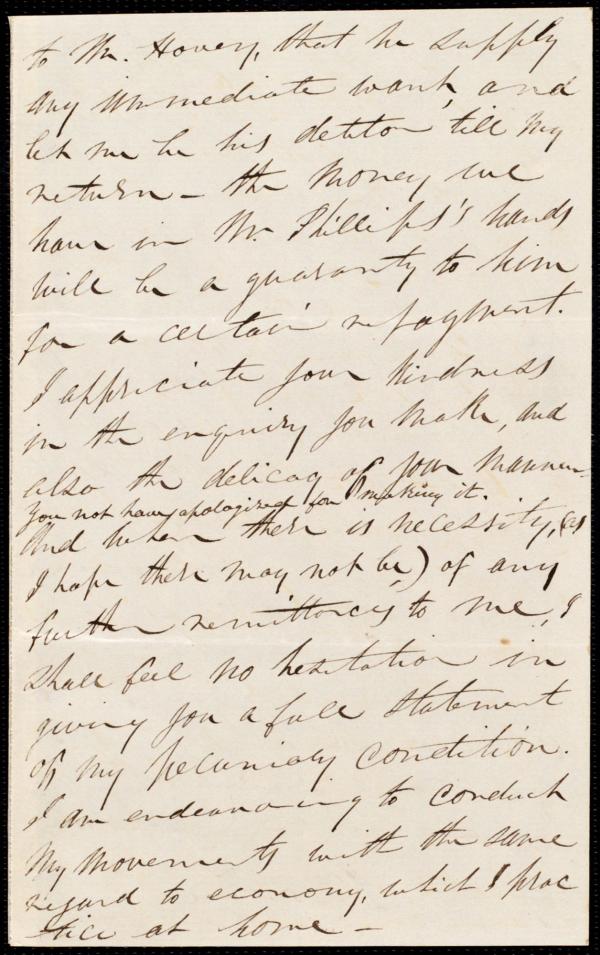 to Mr. Hovey, that he supply
any immediate want, and
let me be his debtor till my
return — the money we
have in Mr. Phillips's hands
will be a guaranty to him
for a certain repayment.
I appreciate your kindness
in the enquiry you make, and
also the delicacy of your manner —
you not have apologized for making it.
And when there is necessity, (as
I hope there may not be,) of any
further remittances to me, I
shall feel no hesitation in
giving you a full statement
of my pecuniary condition.
I am endeavoring to conduct
my movements with the same
regard to economy, which I prac
tice at home —